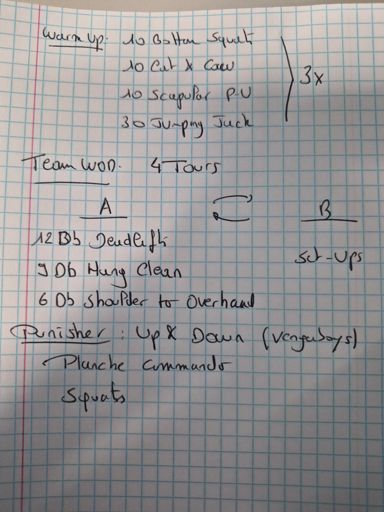 Warm up: 10 Bottom Squats
10 Cat & Cow
10 Scapular P.U
30 Jumping Jack
3x
Team WOD. 4 Tours
A B
12 Db Deadlift
Sit-ups
9 Db Hang Clean
6 Db Shoulder to Overhand
Punisher : Up & Down (Vengaboys)
Planche Commando
Squats